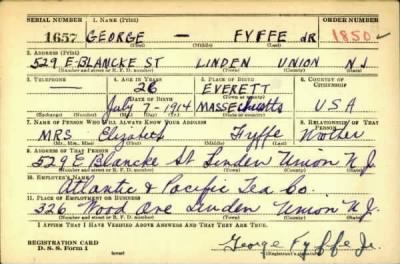 SERIAL NUMBER 1. NAME (Print) ORDER NUMBER
1657 GEORGE — FYFFE JR 1850
(First) (Middle) (Last)
2. ADDRESS (Print)
529 E-BLANCKE ST LINDEN UNION NJ
(Number and street or R. F. D. number) (Town) (County) (State)
3. TELEPHONE 4. AGE IN YEARS 5. PLACE OF BIRTH 6. COUNTRY OF CITIZENSHIP
— 26 EVERETT
DATE OF BIRTH (Town or county)
July 7-1914 MASSEchusetts USA
(Exchange) (Number) (Mo.) (Day) (Yr.) (State or country)
7. NAME OF PERSON WHO WILL ALWAYS KNOW YOUR ADDRESS 8. RELATIONSHIP OF THAT PERSON
MRS Elizabeth Fyffe Mother
(Mr., Mrs., Miss) (First) (Middle) (Last)
9. ADDRESS OF THAT PERSON
529 E Blancke St Linden Union N.J.
(Number and street or R. F. D. number) (Town) (County) (State)
10. EMPLOYER'S NAME
Atlantic & Pacific Tea Co.
11. PLACE OF EMPLOYMENT OR BUSINESS
326 Wood Ave Linden Union N.J.
(Number and street or R. F. D. number) (Town) (County) (State)
I AFFIRM THAT I HAVE VERIFIED ABOVE ANSWERS AND THAT THEY ARE TRUE.
REGISTRATION CARD
D. S. S. Form 1
George Fyffe Jr.
(Registrant's signature)